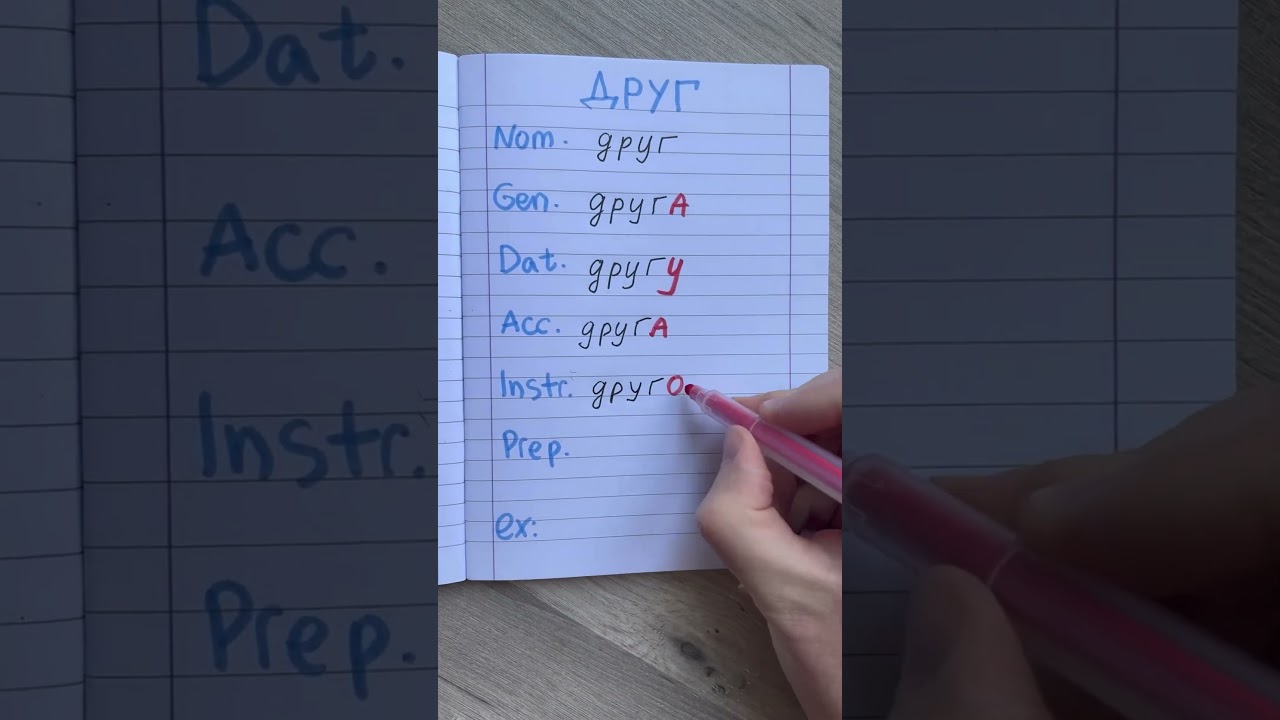 ДРУГ
Nom. друг
Gen. другА
Dat. другУ
Acc. другА
Instr. другО
Prep.
ex: